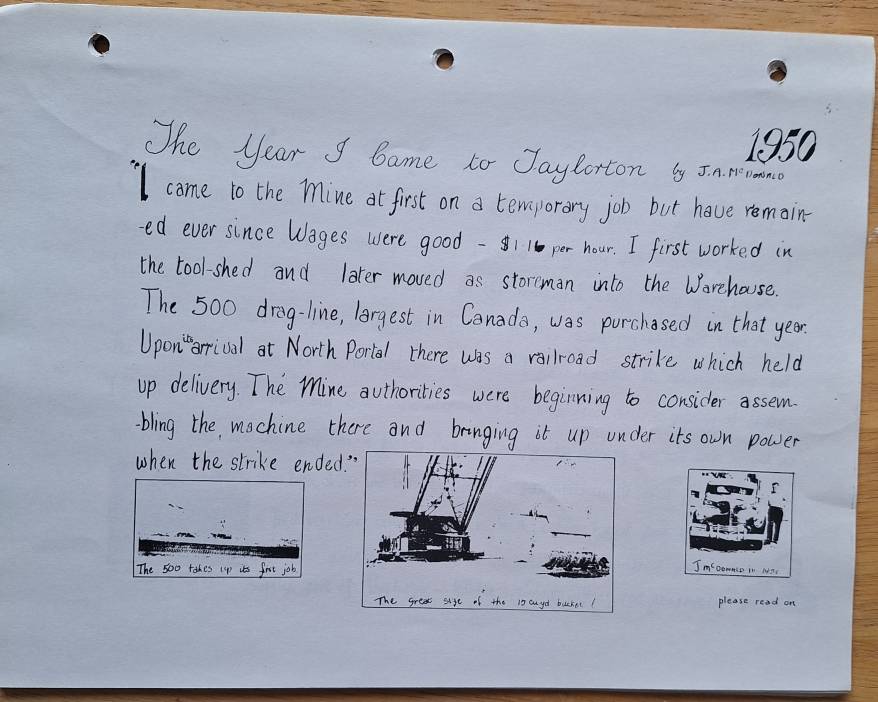 1950
The Year I Came to Taylorton by J.A. McDONALD
"I came to the Mine at first on a temporary job but have remain-
-ed ever since Wages were good - $1.16 per hour. I first worked in
the tool-shed and later moved as storeman into the Warehouse.
The 500 drag-line, largest in Canada, was purchased in that year.
Upon its arrival at North Portal there was a railroad strike which held
up delivery. The Mine authorities were beginning to consider assem-
-bling the machine there and bringing it up under its own power
when the strike ended."
The 500 takes up its first job
The Great size of the cuyd bucket!
J McDONALD in
please read on